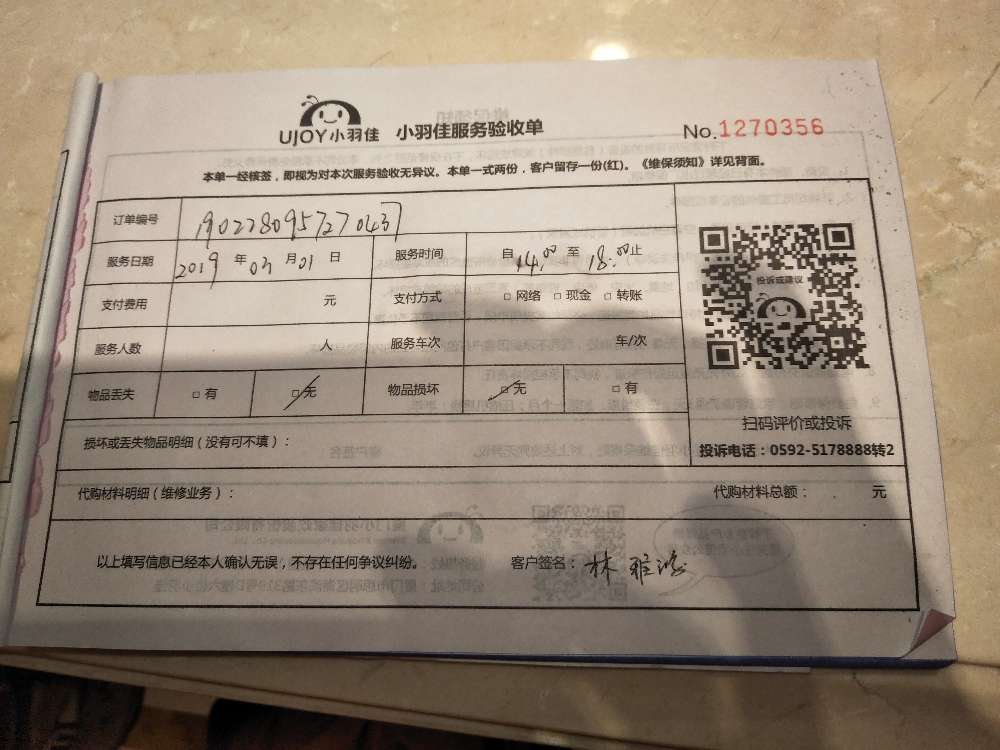 UJOY小羽佳 小羽佳服务验收单 No.1270356
本单一经核签，即视为对本次服务验收无异议。本单一式两份，客户留存一份(红)。《维保须知》详见背面。
订单编号 190228095727043
服务日期 2019 年 03 月 01 日 服务时间 自 14:00 至 18:00 止
支付费用 元 支付方式 □ 网络 □ 现金 □ 转账
投诉或建议
服务人数 人 服务车次 车/次
物品丢失 □ 有 □ 无 物品损坏 □ 无 □ 有
扫码评价或投诉
损坏或丢失物品明细（没有可不填）：
投诉电话：0592-5178888转2
代购材料明细（维修业务）： 代购材料总额： 元
以上填写信息已经本人确认无误，不存在任何争议纠纷。 客户签名： 林雅